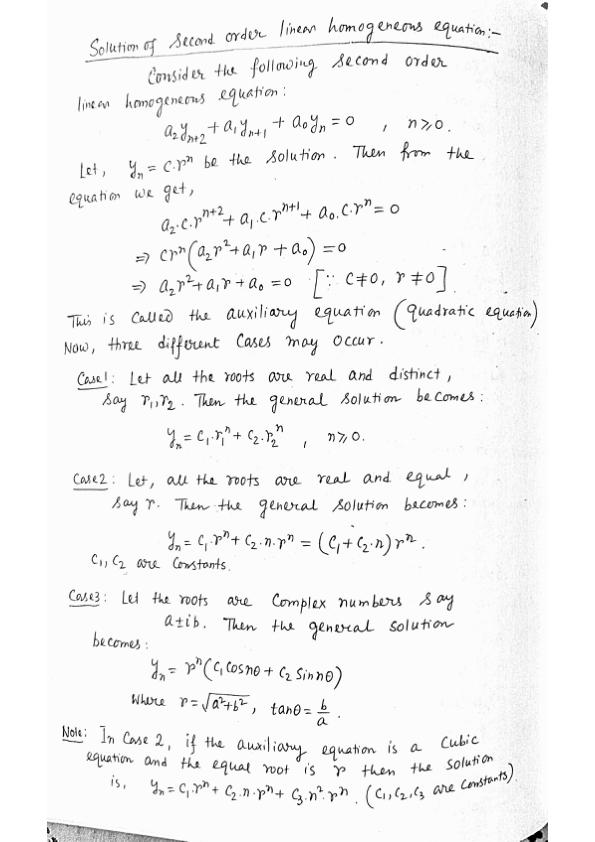 Solution of second order linear homogeneous equation:-
Consider the following second order
linear homogeneous equation:
a₂yₙ₊₂ + a₁yₙ₊₁ + a₀yₙ = 0 , n≥0.
Let, yₙ = c.rⁿ be the solution. Then from the
equation we get,
a₂.c.rⁿ⁺² + a₁.c.rⁿ⁺¹ + a₀.c.rⁿ = 0
⇒ crⁿ(a₂r²+a₁r + a₀) = 0
⇒ a₂r²+a₁r + a₀ = 0 [∵ c≠0, r≠0]
This is called the auxiliary equation (quadratic equation)
Now, three different cases may occur.
Case1: Let all the roots are real and distinct,
say r₁,r₂. Then the general solution becomes:
yₙ = c₁.r₁ⁿ + c₂.r₂ⁿ , n≥0.
Case2: Let, all the roots are real and equal,
say r. Then the general solution becomes:
yₙ = c₁.rⁿ + c₂.n.rⁿ = (c₁+c₂.n)rⁿ.
c₁, c₂ are constants.
Case3: Let the roots are complex numbers say
a±ib. Then the general solution
becomes:
yₙ = rⁿ(c₁ cosnθ + c₂ sinnθ)
where r = √a²+b² , tanθ = b/a .
Note: In Case 2, if the auxiliary equation is a cubic
equation and the equal root is r then the solution
is, yₙ = c₁.rⁿ + c₂.n.rⁿ + c₃.n².rⁿ. (c₁,c₂,c₃ are constants).